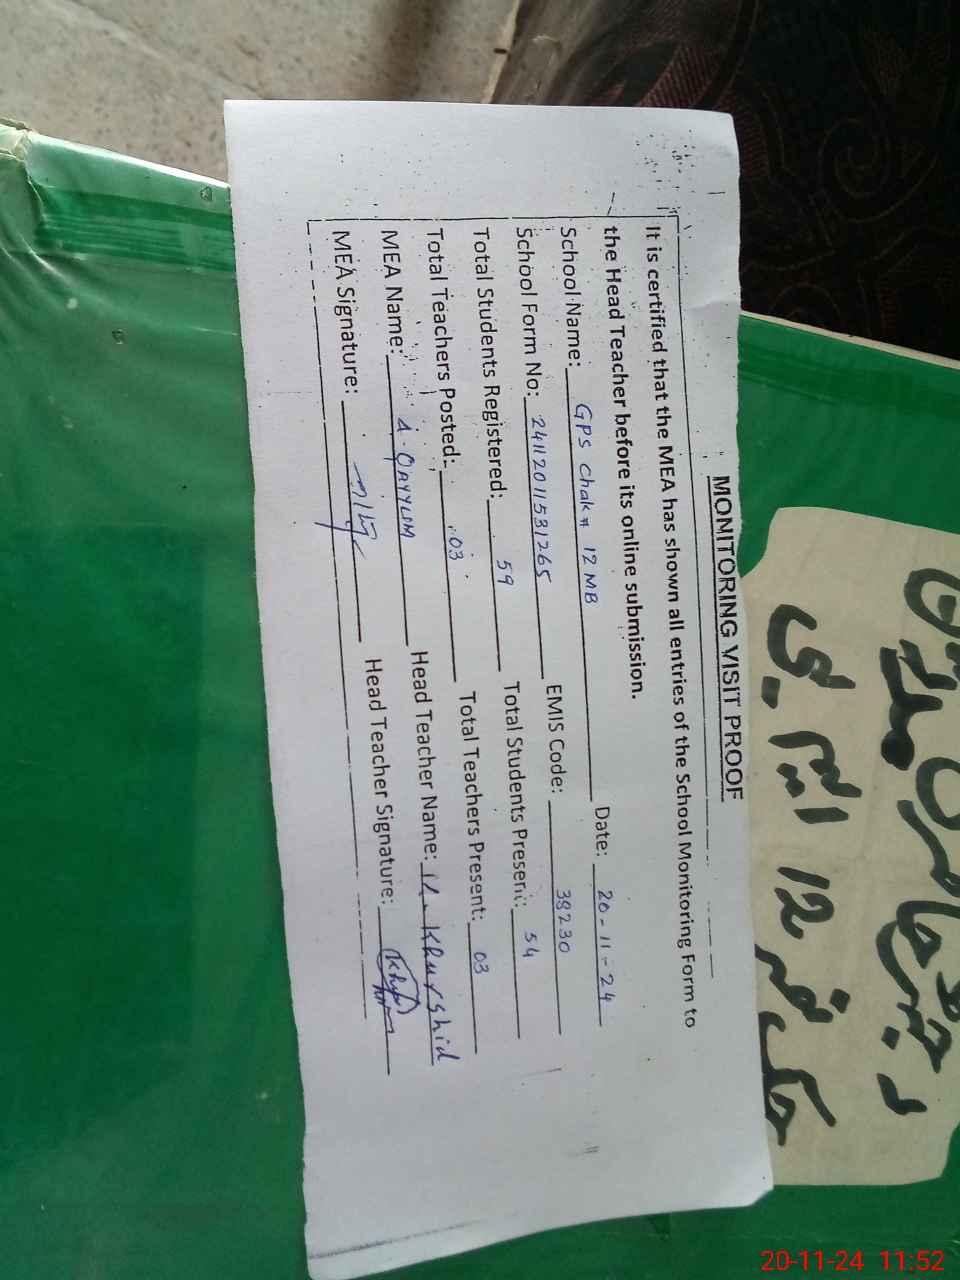 MONITORING VISIT PROOF
It is certified that the MEA has shown all entries of the School Monitoring Form to
the Head Teacher before its online submission.
School Name: GPS Chak # 12 MB Date: 20-11-24
School Form No: 2411201131265 EMIS Code: 38230
Total Students Registered: 59 Total Students Present: 54
Total Teachers Posted: 03 Total Teachers Present: 03
MEA Name: A. QAYYUM Head Teacher Name: M. Khurshid
MEA Signature: Head Teacher Signature:
رجسٹر حاضری
چک نمبر 12 ایم بی
20-11-24 11:52